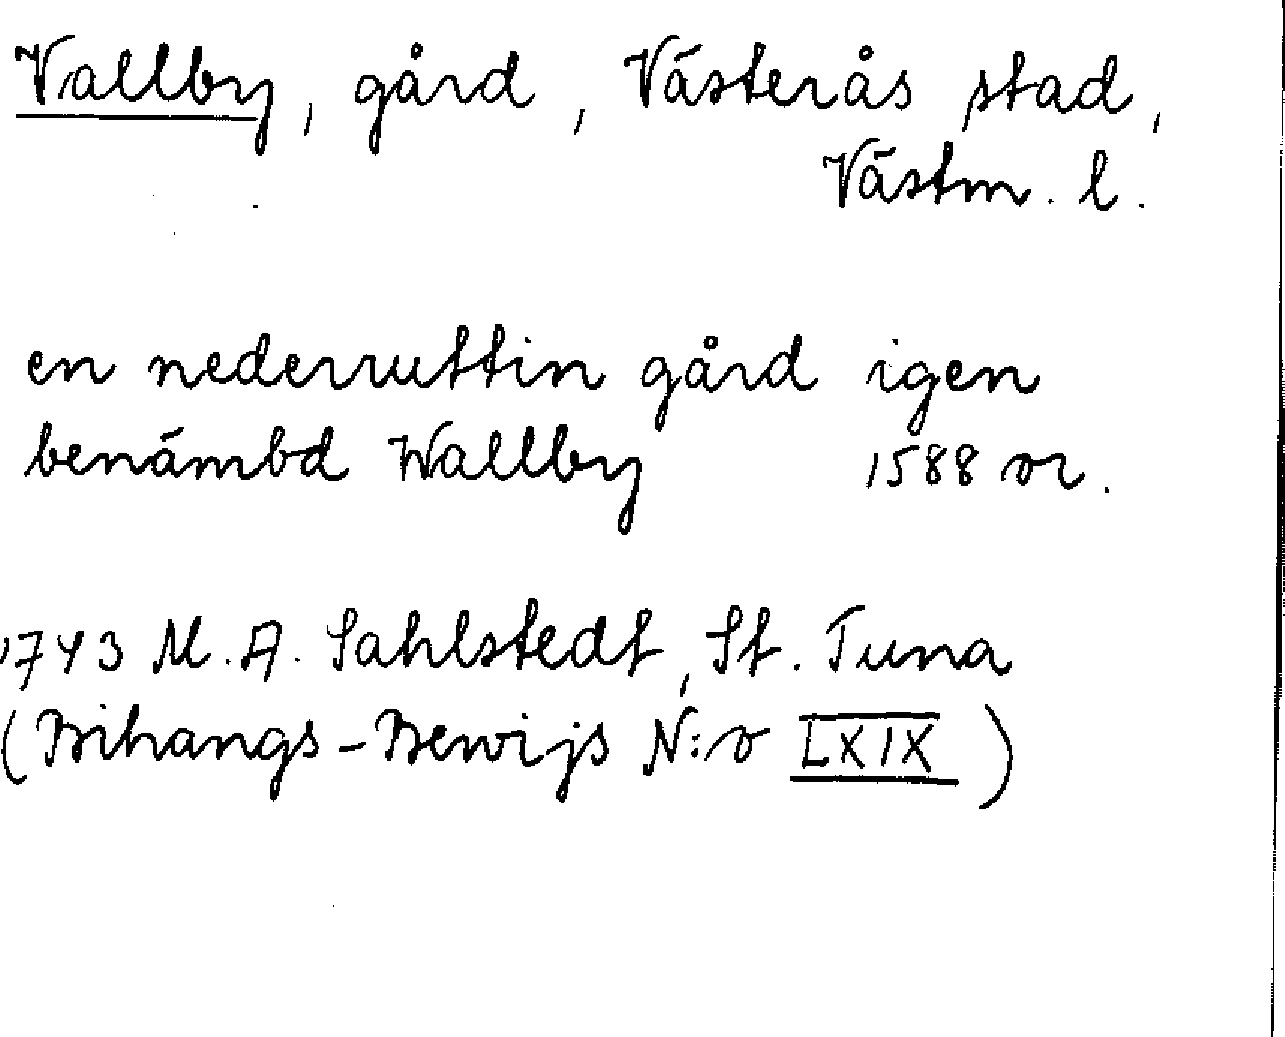 Vallby, gård, Västerås stad,
Västm. l.
en nederruttin gård igen
benämbd Wallby 1588 or.
1743 M.A. Sahlstedt, St. Tuna
(Bihangs-Bewijs N:o LXIX)